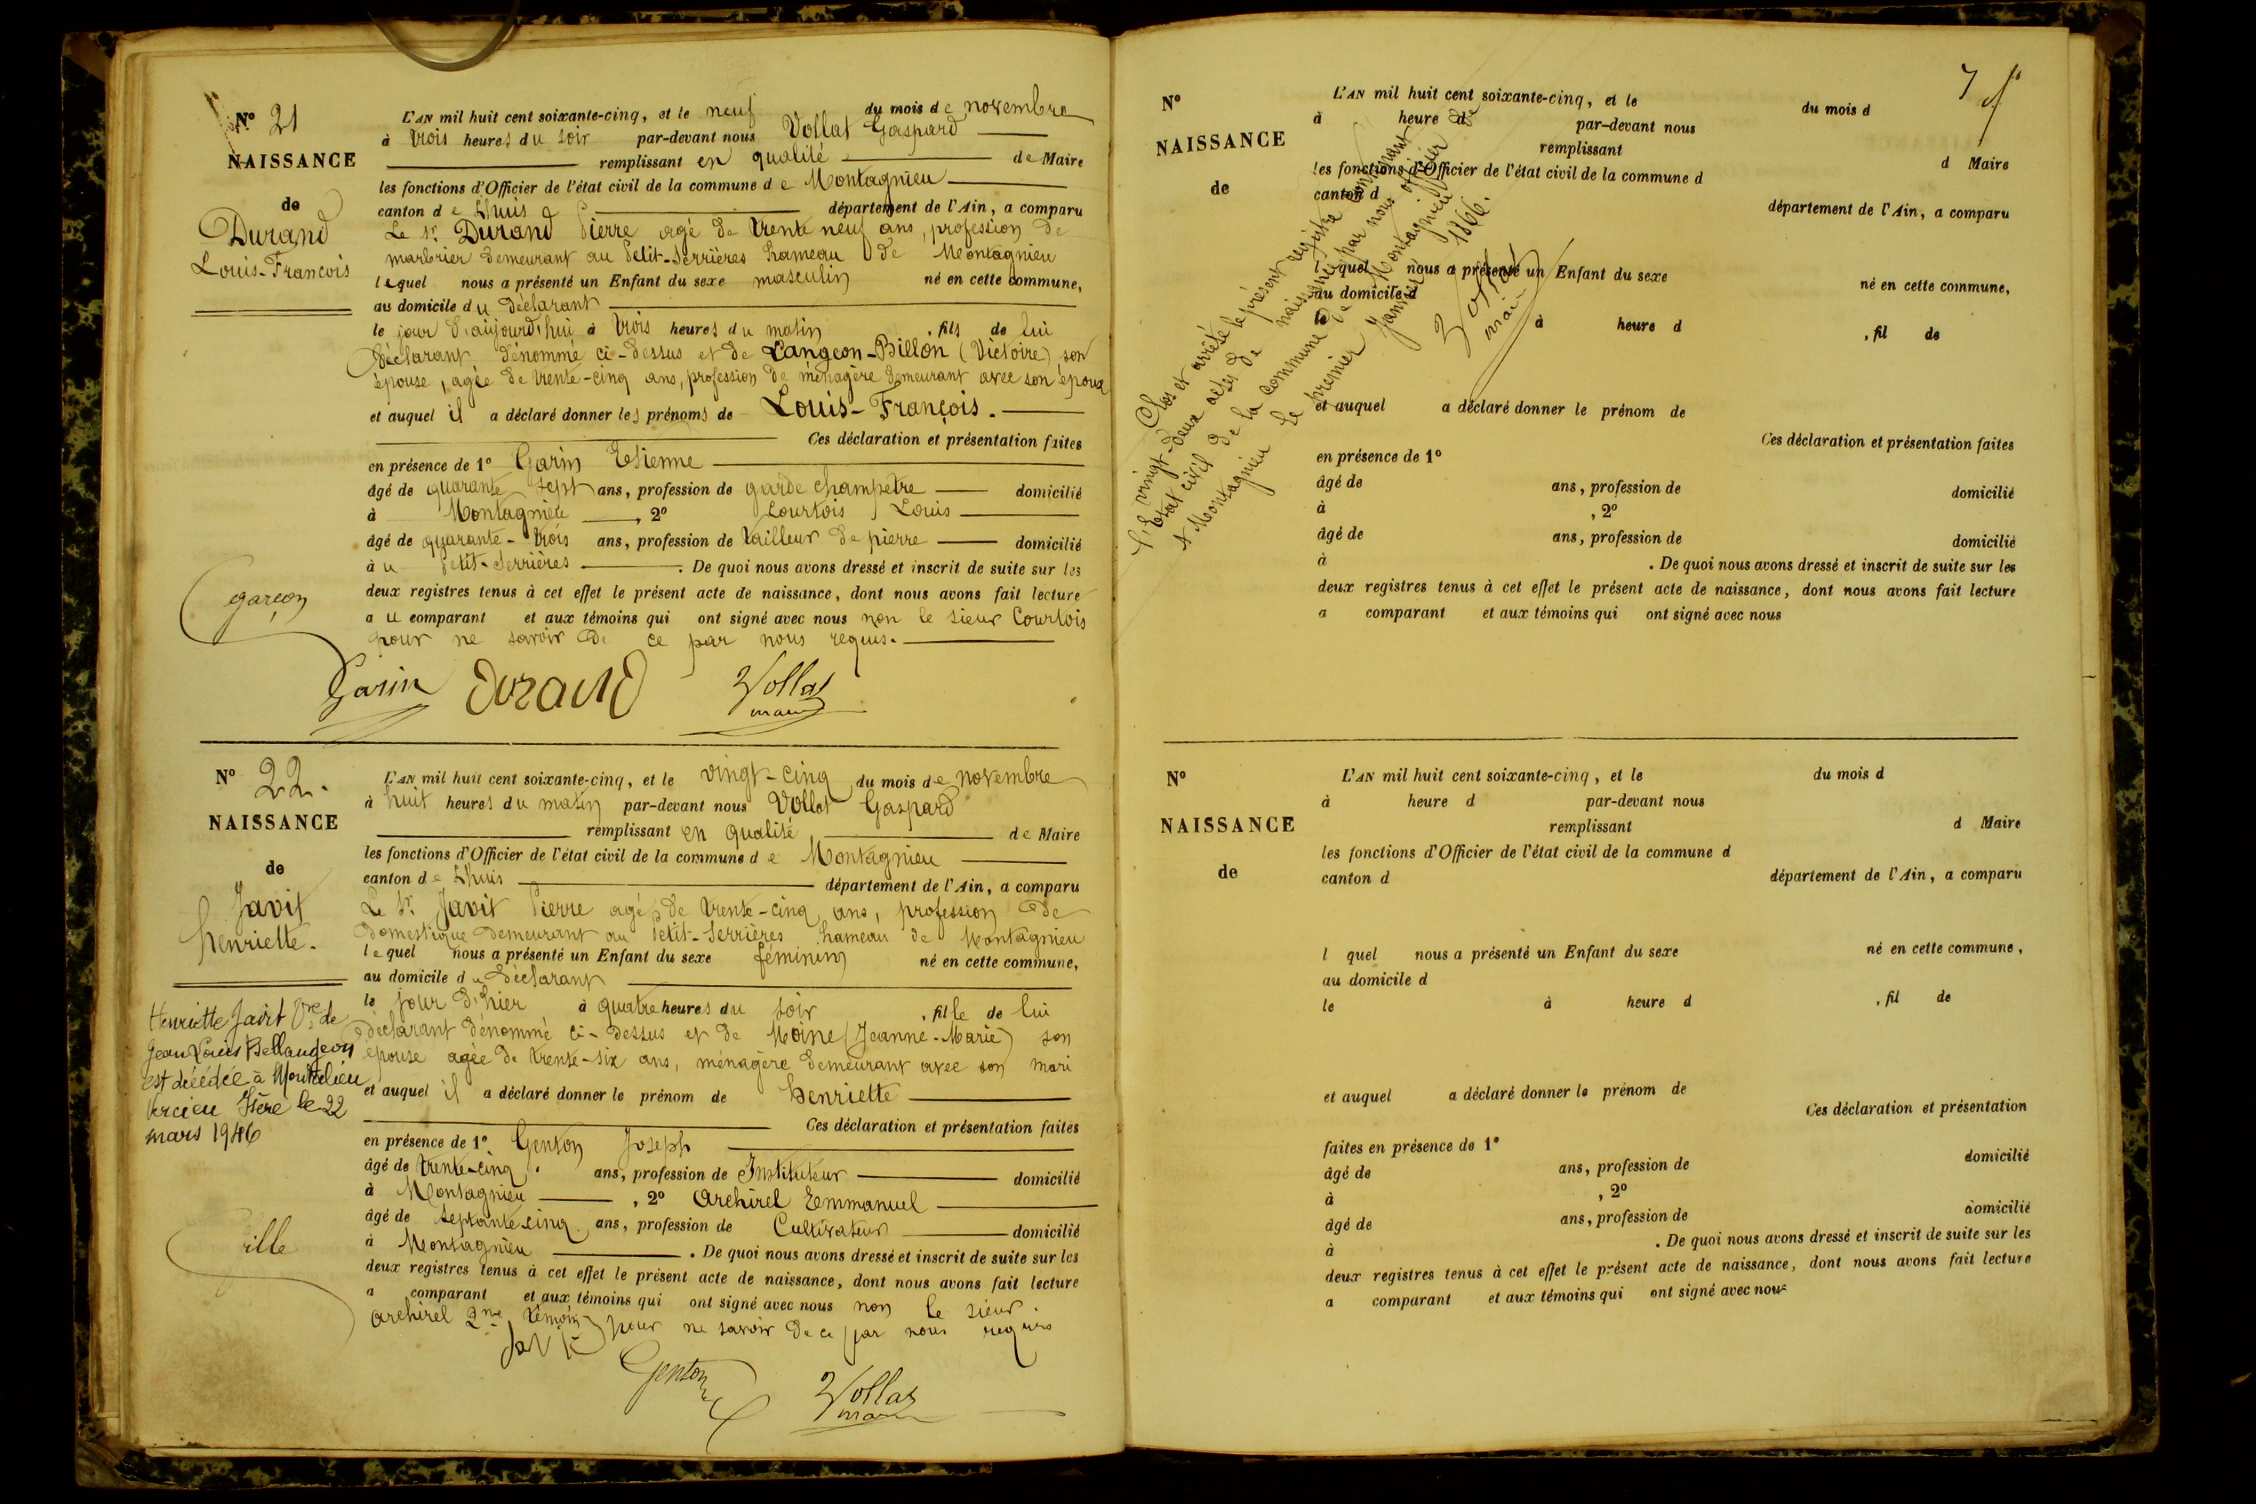 N° 21
NAISSANCE
de
Durand
Louis-François
garçon
L'AN mil huit cent soixante-cinq, et le neuf du mois de novembre
à trois heures du soir par-devant nous Vollat Gaspard
remplissant en qualité de Maire
les fonctions d'Officier de l'état civil de la commune de Montagnieu
canton de Lhuis département de l'Ain, a comparu
Le Sr Durand Pierre agé de trente neuf ans, profession de
marbrier demeurant au Petit-Serrières hameau de Montagnieu
lequel nous a présenté un Enfant du sexe masculin né en cette commune,
au domicile du déclarant
le jour d'aujourd'hui à trois heures du matin, fils de lui
déclarant dénommé ci-dessus et de Langeon-Billon (Victoire) son
épouse, agée de trente-cinq ans, profession de ménagère demeurant avec son époux
et auquel il a déclaré donner les prénoms de Louis-François.
Ces déclaration et présentation faites
en présence de 1° Garin Etienne
âgé de quarante sept ans, profession de garde champetre domicilié
à Montagnieu, 2° Courtois Louis
âgé de quarante-trois ans, profession de tailleur de pierre domicilié
à u Petit-Serrières. De quoi nous avons dressé et inscrit de suite sur les
deux registres tenus à cet effet le présent acte de naissance, dont nous avons fait lecture
a u comparant et aux témoins qui ont signé avec nous non le sieur Courtois
pour ne savoir de ce par nous requis.
Garin Durand Vollat
maire
N° 22.
NAISSANCE
de
Javit
henriette.
Henriette Javit Vve de
Jean Louis Bellangeon
est décédée à Montalieu
Vercieu Isère le 22
mars 1946
fille
L'AN mil huit cent soixante-cinq, et le vingt-cinq du mois de novembre
à huit heures du matin par-devant nous Vollat Gaspard
remplissant en qualité de Maire
les fonctions d'Officier de l'état civil de la commune de Montagnieu
canton de Lhuis département de l'Ain, a comparu
Le Sr Javit Pierre agé de trente-cinq ans, profession de
domestique demeurant au Petit-Serrières hameau de Montagnieu
lequel nous a présenté un Enfant du sexe féminin né en cette commune,
au domicile du déclarant
le jour d'hier à quatre heures du soir, fille de lui
déclarant dénommé ci-dessus et de Moine (Jeanne-Marie) son
épouse agée de trente-six ans, ménagère demeurant avec son mari
et auquel il a déclaré donner le prénom de henriette
Ces déclaration et présentation faites
en présence de 1° Genton Joseph
âgé de trente-cinq ans, profession de Instituteur domicilié
à Montagnieu, 2° Archirel Emmanuel
âgé de septante cinq ans, profession de Cultivateur domicilié
à Montagnieu. De quoi nous avons dressé et inscrit de suite sur les
deux registres tenus à cet effet le présent acte de naissance, dont nous avons fait lecture
a comparant et aux témoins qui ont signé avec nous non le sieur
Archirel 2me témoin pour ne savoir de ce par nous requis
Javit
Genton Vollat
maire
7
N°
NAISSANCE
de
L'AN mil huit cent soixante-cinq, et le du mois d
à heure d par-devant nous
remplissant d Maire
les fonctions d'Officier de l'état civil de la commune d
canton d département de l'Ain, a comparu
l quel nous a présenté un Enfant du sexe né en cette commune,
au domicile d
le à heure d, fil de
et auquel a déclaré donner le prénom de
Ces déclaration et présentation faites
en présence de 1°
âgé de ans, profession de domicilié
à, 2°
âgé de ans, profession de domicilié
à. De quoi nous avons dressé et inscrit de suite sur les
deux registres tenus à cet effet le présent acte de naissance, dont nous avons fait lecture
a comparant et aux témoins qui ont signé avec nous
Clos et arrêté le présent registre contenant
vingt-deux actes de naissance par nous officier de
l'Etat civil de la commune de Montagnieu
A Montagnieu le premier Janvier 1866.
Vollat
maire
N°
NAISSANCE
de
L'AN mil huit cent soixante-cinq, et le du mois d
à heure d par-devant nous
remplissant d Maire
les fonctions d'Officier de l'état civil de la commune d
canton d département de l'Ain, a comparu
l quel nous a présenté un Enfant du sexe né en cette commune,
au domicile d
le à heure d, fil de
et auquel a déclaré donner le prénom de
Ces déclaration et présentation
faites en présence de 1°
âgé de ans, profession de domicilié
à, 2°
âgé de ans, profession de domicilié
à. De quoi nous avons dressé et inscrit de suite sur les
deux registres tenus à cet effet le présent acte de naissance, dont nous avons fait lecture
a comparant et aux témoins qui ont signé avec nous